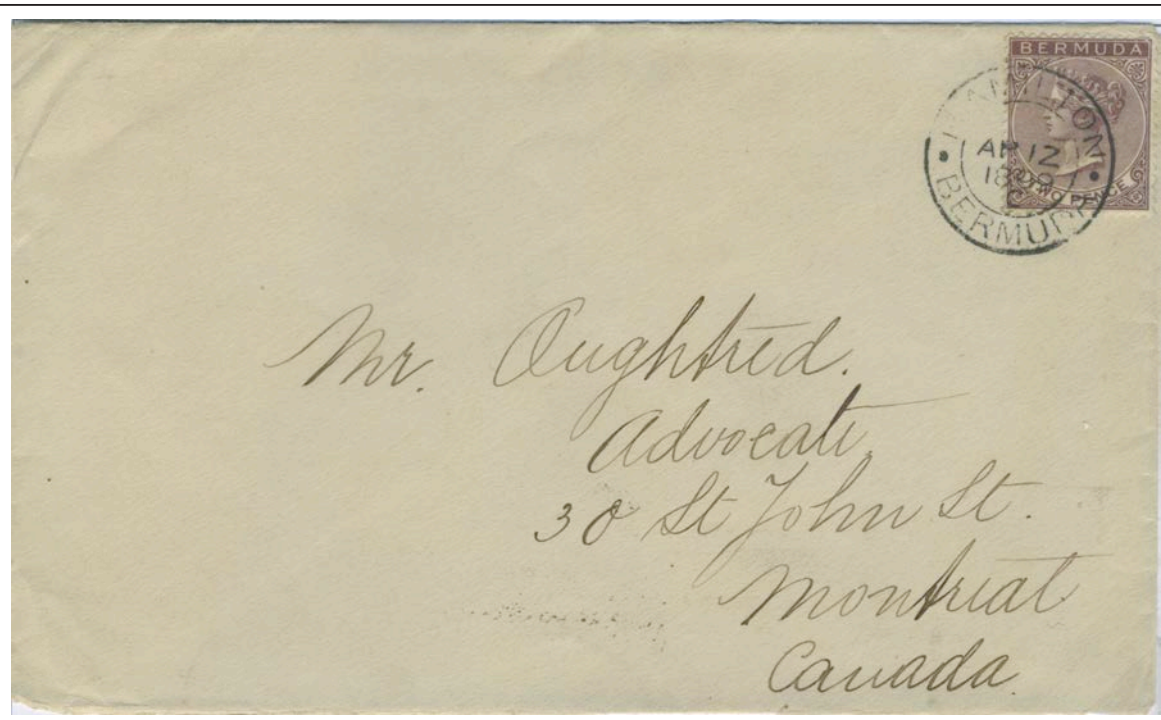 BERMUDA
TWO PENCE
HAMILTON
AP 12
BERMUDA
Mr. Oughtred.
Advocate
30 St John St.
Montreal
Canada.